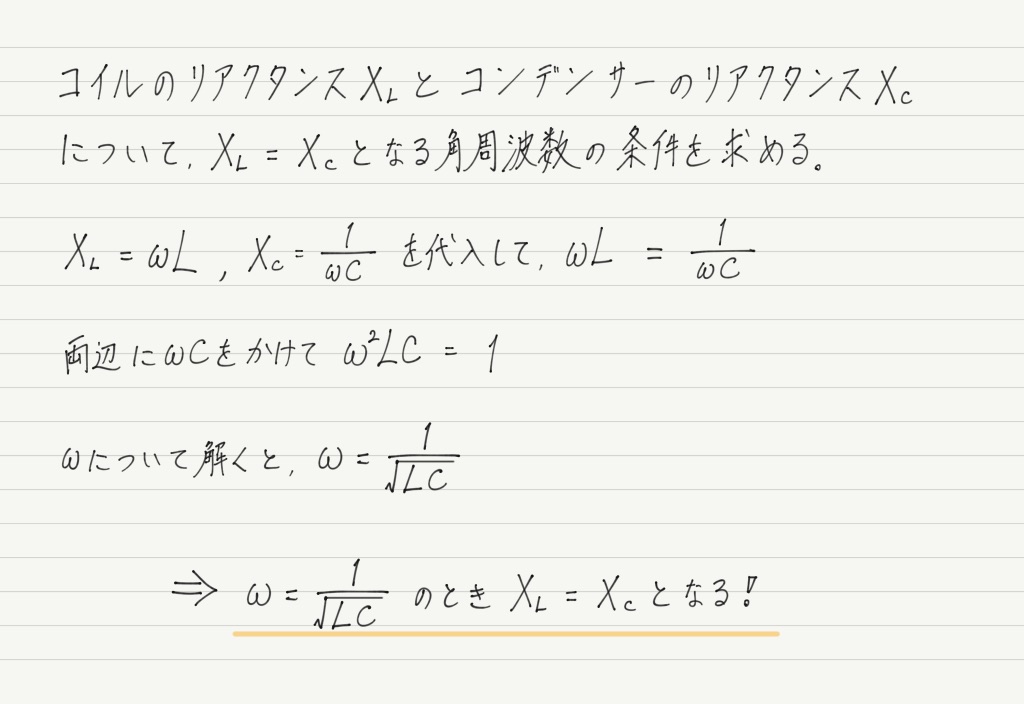 コイルのリアクタンス X_L と コンデンサーのリアクタンス X_C
について, X_L = X_C となる角周波数の条件を求める。
X_L = ωL , X_C = 1/(ωC) を代入して, ωL = 1/(ωC)
両辺にωCをかけて ω²LC = 1
ωについて解くと, ω = 1/√(LC)
⇒ ω = 1/√(LC) のとき X_L = X_C となる!